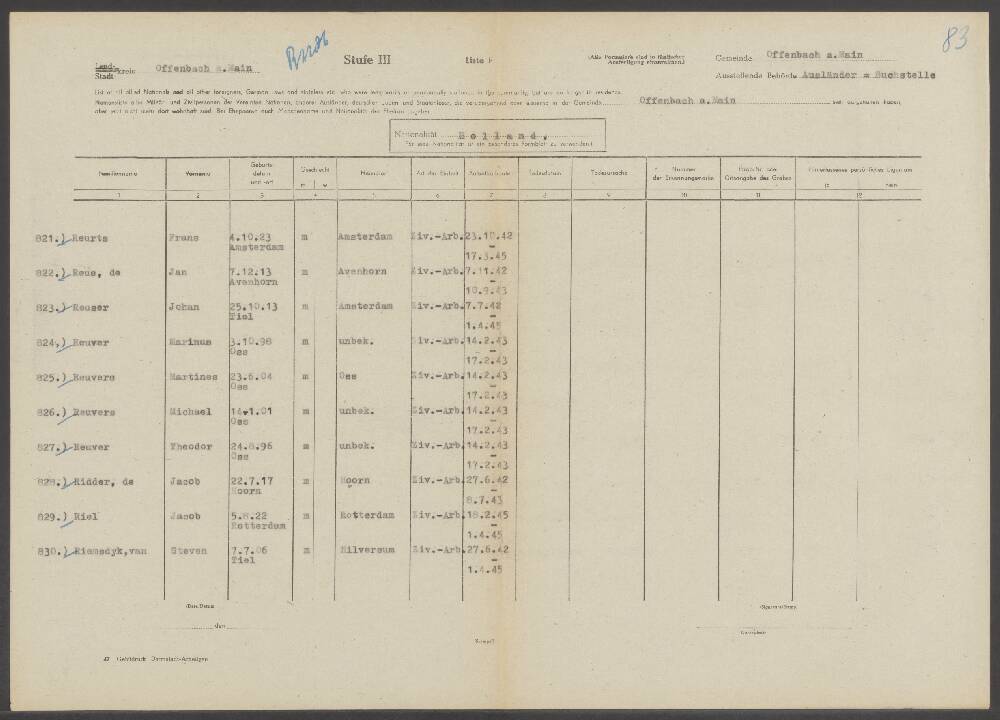 83
Stufe III
Liste F
(Alle Formulare sind in fünffacher Ausfertigung einzureichen.)
Land- Stadt kreis Offenbach a.Main
Gemeinde Offenbach a.Main
Ausstellende Behörde Ausländer = Suchstelle
in der Gemeinde Offenbach a.Main sich aufgehalten haben,
Nationalität Holland.
(Für jede Nationalität ist ein besonderes Formblatt zu verwenden)
Familienname Vorname Geburtsdatum und -ort Geschlecht m w Heimatort Art der Einheit Aufenthaltsdauer Todesdatum Todesursache Nummer der Erkennungsmarke Grabstätte oder Ortsangabe des Grabes Hinterlassenes persönliches Eigentum ja nein
1 2 3 4 5 6 7 8 9 10 11 12
821.) Reurts Frans 4.10.23 m Amsterdam Ziv.-Arb. 23.10.42
Amsterdam –
17.3.45
822.) Reus, de Jan 7.12.13 m Avenhorn Ziv.-Arb. 7.11.42
Avenhorn –
10.9.43
823.) Reuser Johan 25.10.13 m Amsterdam Ziv.-Arb. 7.7.42
Tiel –
1.4.45
824.) Reuver Marinus 3.10.98 m unbek. Ziv.-Arb. 14.2.43
Oss –
17.2.43
825.) Reuvers Martines 23.6.04 m Oss Ziv.-Arb. 14.2.43
Oss –
17.2.43
826.) Reuvers Michael 14.1.01 m unbek. Ziv.-Arb. 14.2.43
Oss –
17.2.43
827.) Reuver Theodor 24.8.96 m unbek. Ziv.-Arb. 14.2.43
Oss –
17.2.43
828.) Ridder, de Jacob 22.7.17 m Hoorn Ziv.-Arb. 27.6.42
Hoorn –
8.7.43
829.) Riel Jacob 5.8.22 m Rotterdam Ziv.-Arb. 18.2.45
Rotterdam –
1.4.45
830.) Riemsdyk,van Steven 7.7.06 m Hilversum Ziv.-Arb. 27.6.42
Tiel –
1.4.45
(Date/Datum)
(Signature/Stamp)
den